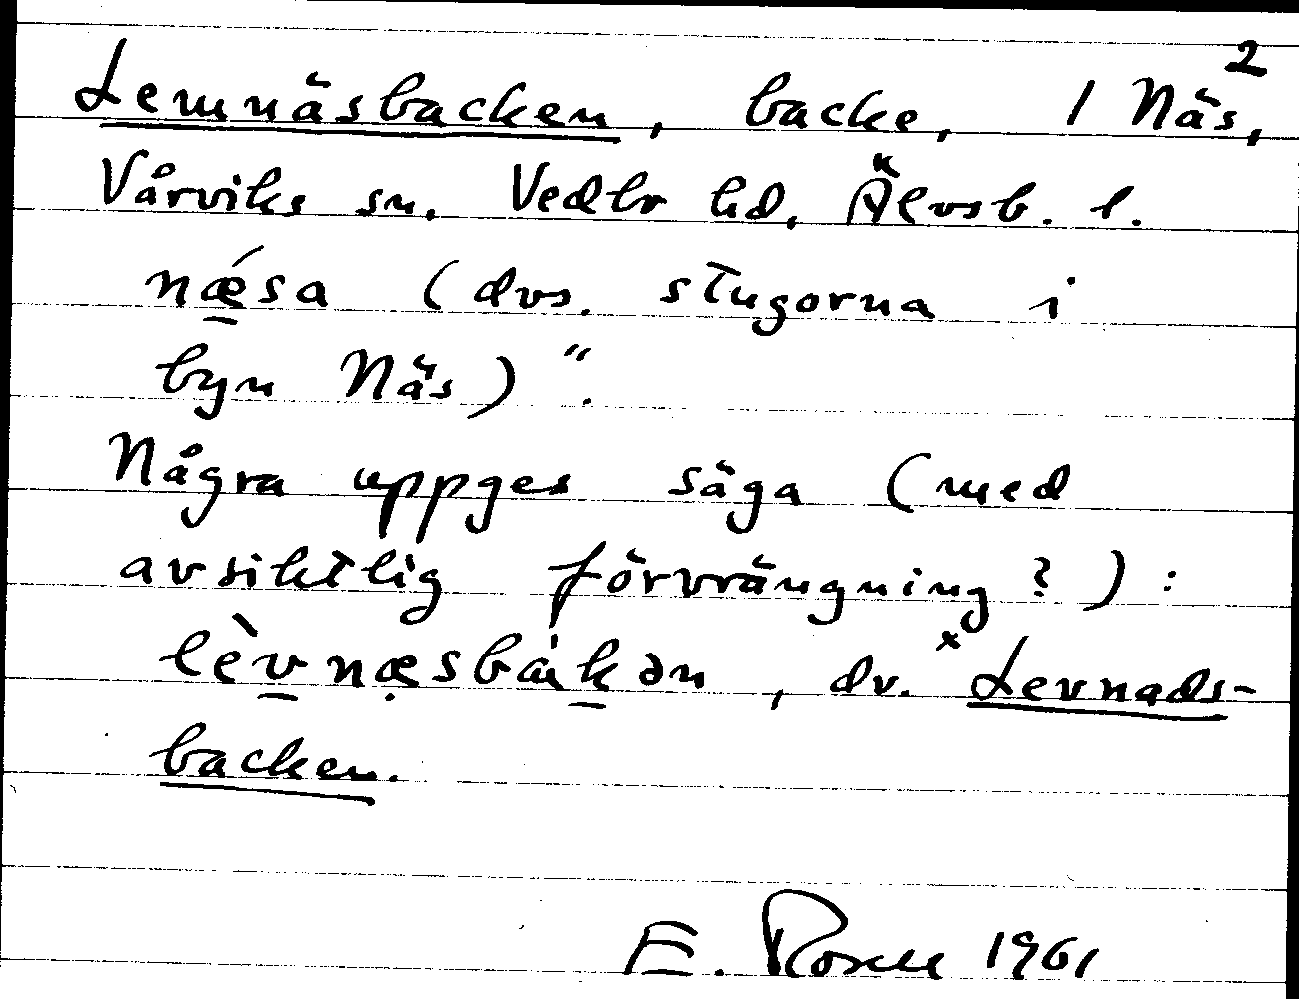 2
Lemnäsbacken, backe, 1 Näs,
Vårviks sn. Vedbo hd, Älvsb. l.
nǽ̱sa (dvs. stugorna i
byn Näs)".
Några uppges säga (med
avsiktlig förvrängning?):
lèv̱næ̣sbàḵən, dv. ˣLevnads-
backen.
E. Rosell 1961